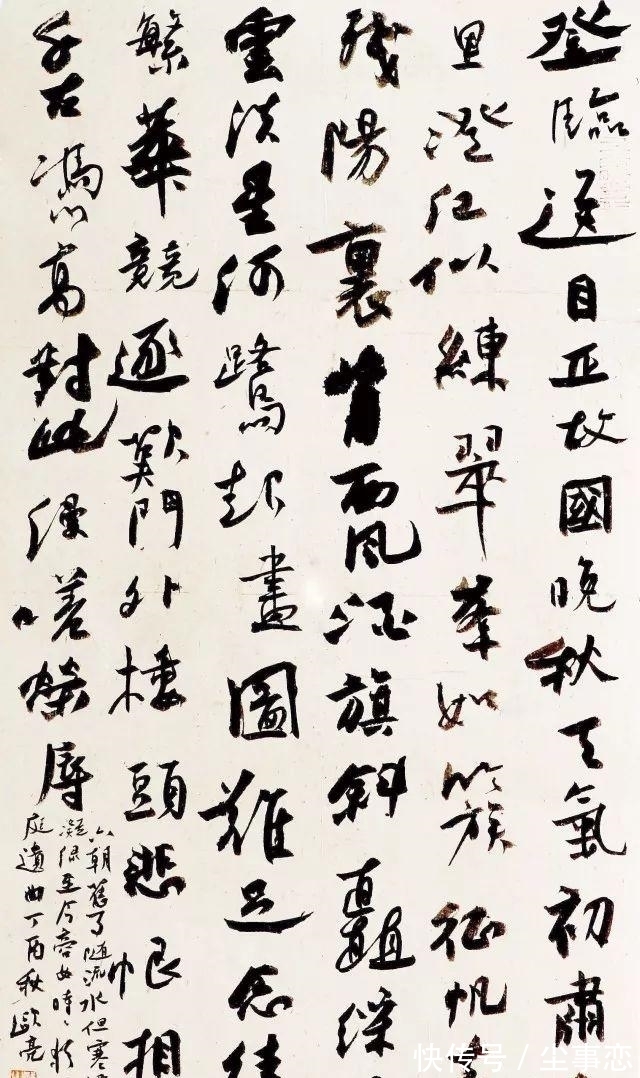 登臨送目正故國晚秋天氣初肅
里澄江似練翠峯如簇征帆
殘陽裏背西風酒旗斜矗綵
雲淡星河鷺起畫圖難足念往
繁華競逐歎門外樓頭悲恨相
千古憑高對此漫嗟榮辱
六朝舊事隨流水但寒
凝綠至今商女時〻
庭遺曲丁酉秋歐亮
快传号 / 尘事恋